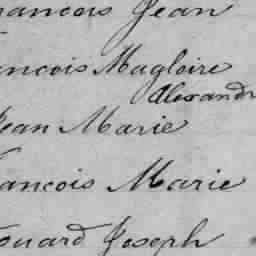 rancois Jean
ancois Magloire
Alexandr
Jean Marie
rancois Marie
douard Joseph